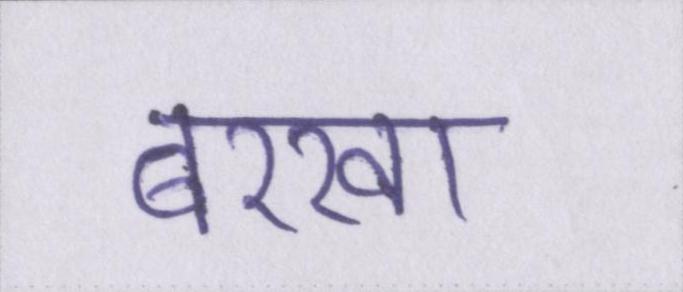 बरखा